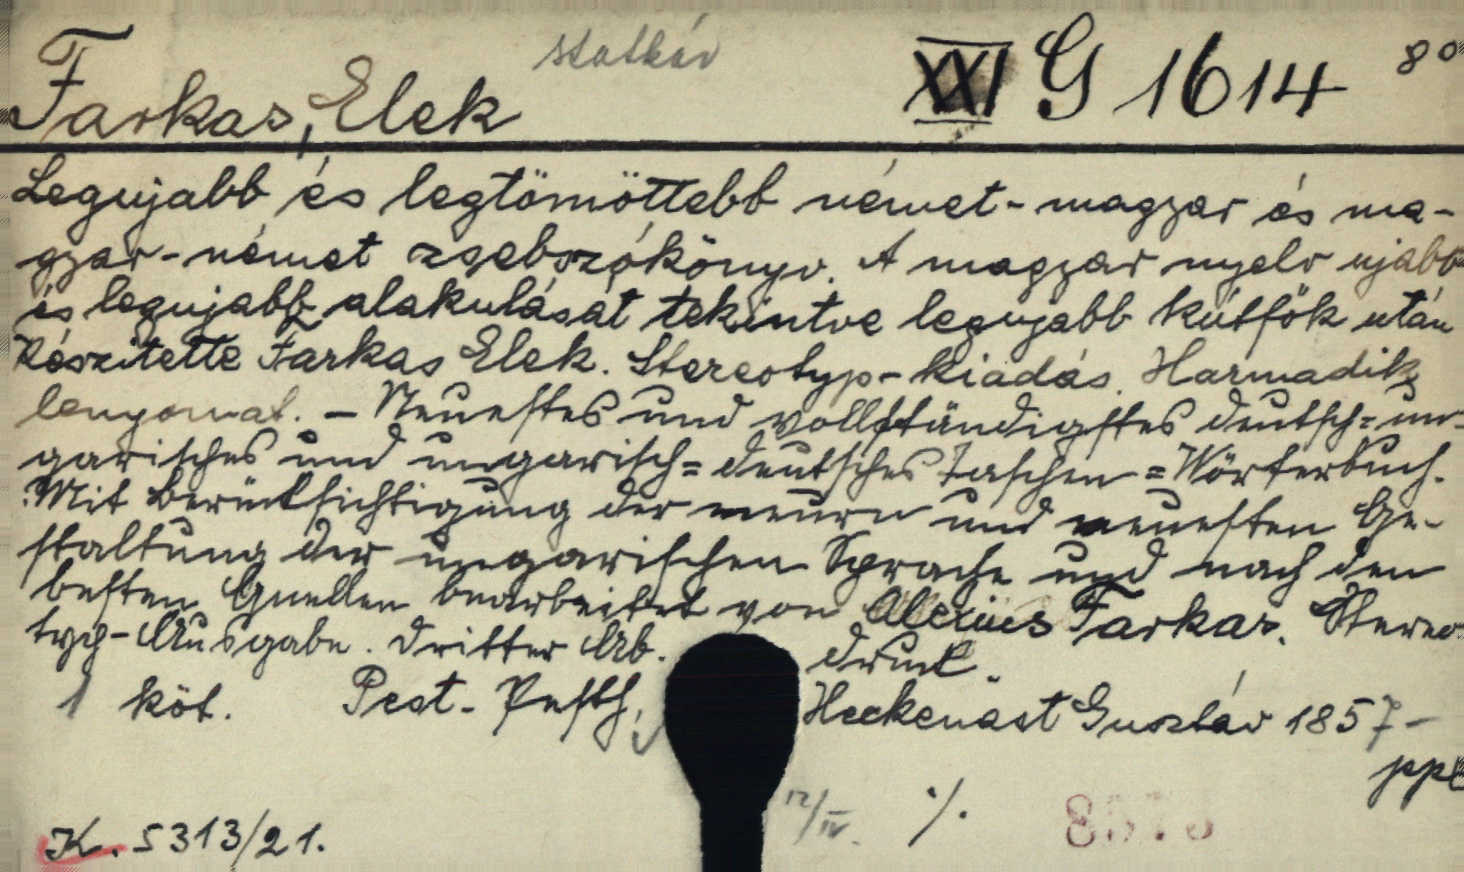 statkáv XXI G 1614 8°
Farkas, Elek
Legujabb és legtömöttebb német-magyar és ma-
gyar-német zsebszókönyv. A magyar nyelv ujabb
és legujabb alakulását tekintve legujabb kútfők után
készitette Farkas Elek. Stereotyp-kiadás. Harmadik
lenyomat. - Neuestes und vollständigstes deutsch=un-
garisches und ungarisch=deutsches Taschen=Wörterbuch.
Mit Berücksichtigung der neuern und neuesten Ge-
staltung der ungarischen Sprache und nach den
besten Quellen bearbeitet von Alexius Farkas. Stereo-
typ-Ausgabe. Dritter Ab. druck.
1 köt. Pest-Pesth, Heckenast Gusztáv 1857-
ppc
12/IV. ./.
K. 5313/21.